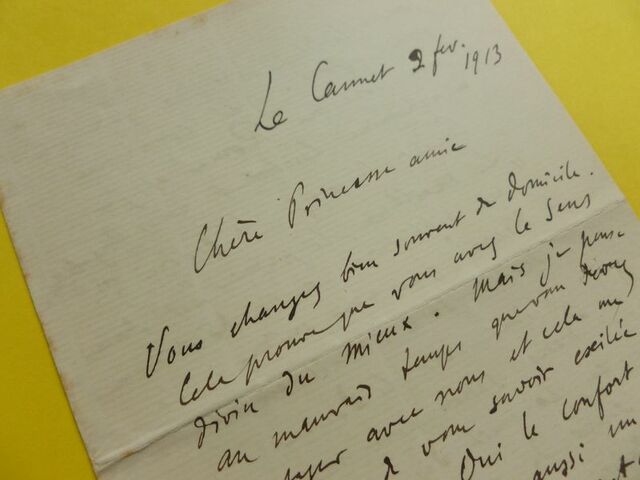 Le Cannet 2 fev. 1913
Chère Princesse amie
Vous changez bien souvent de domicile.
Cela prouve que vous avez le sens
divin du mieux. Mais je pense
au mauvais temps que vous
avec nous et cela me
de vous savoir exilée
Oui le confort
aussi un